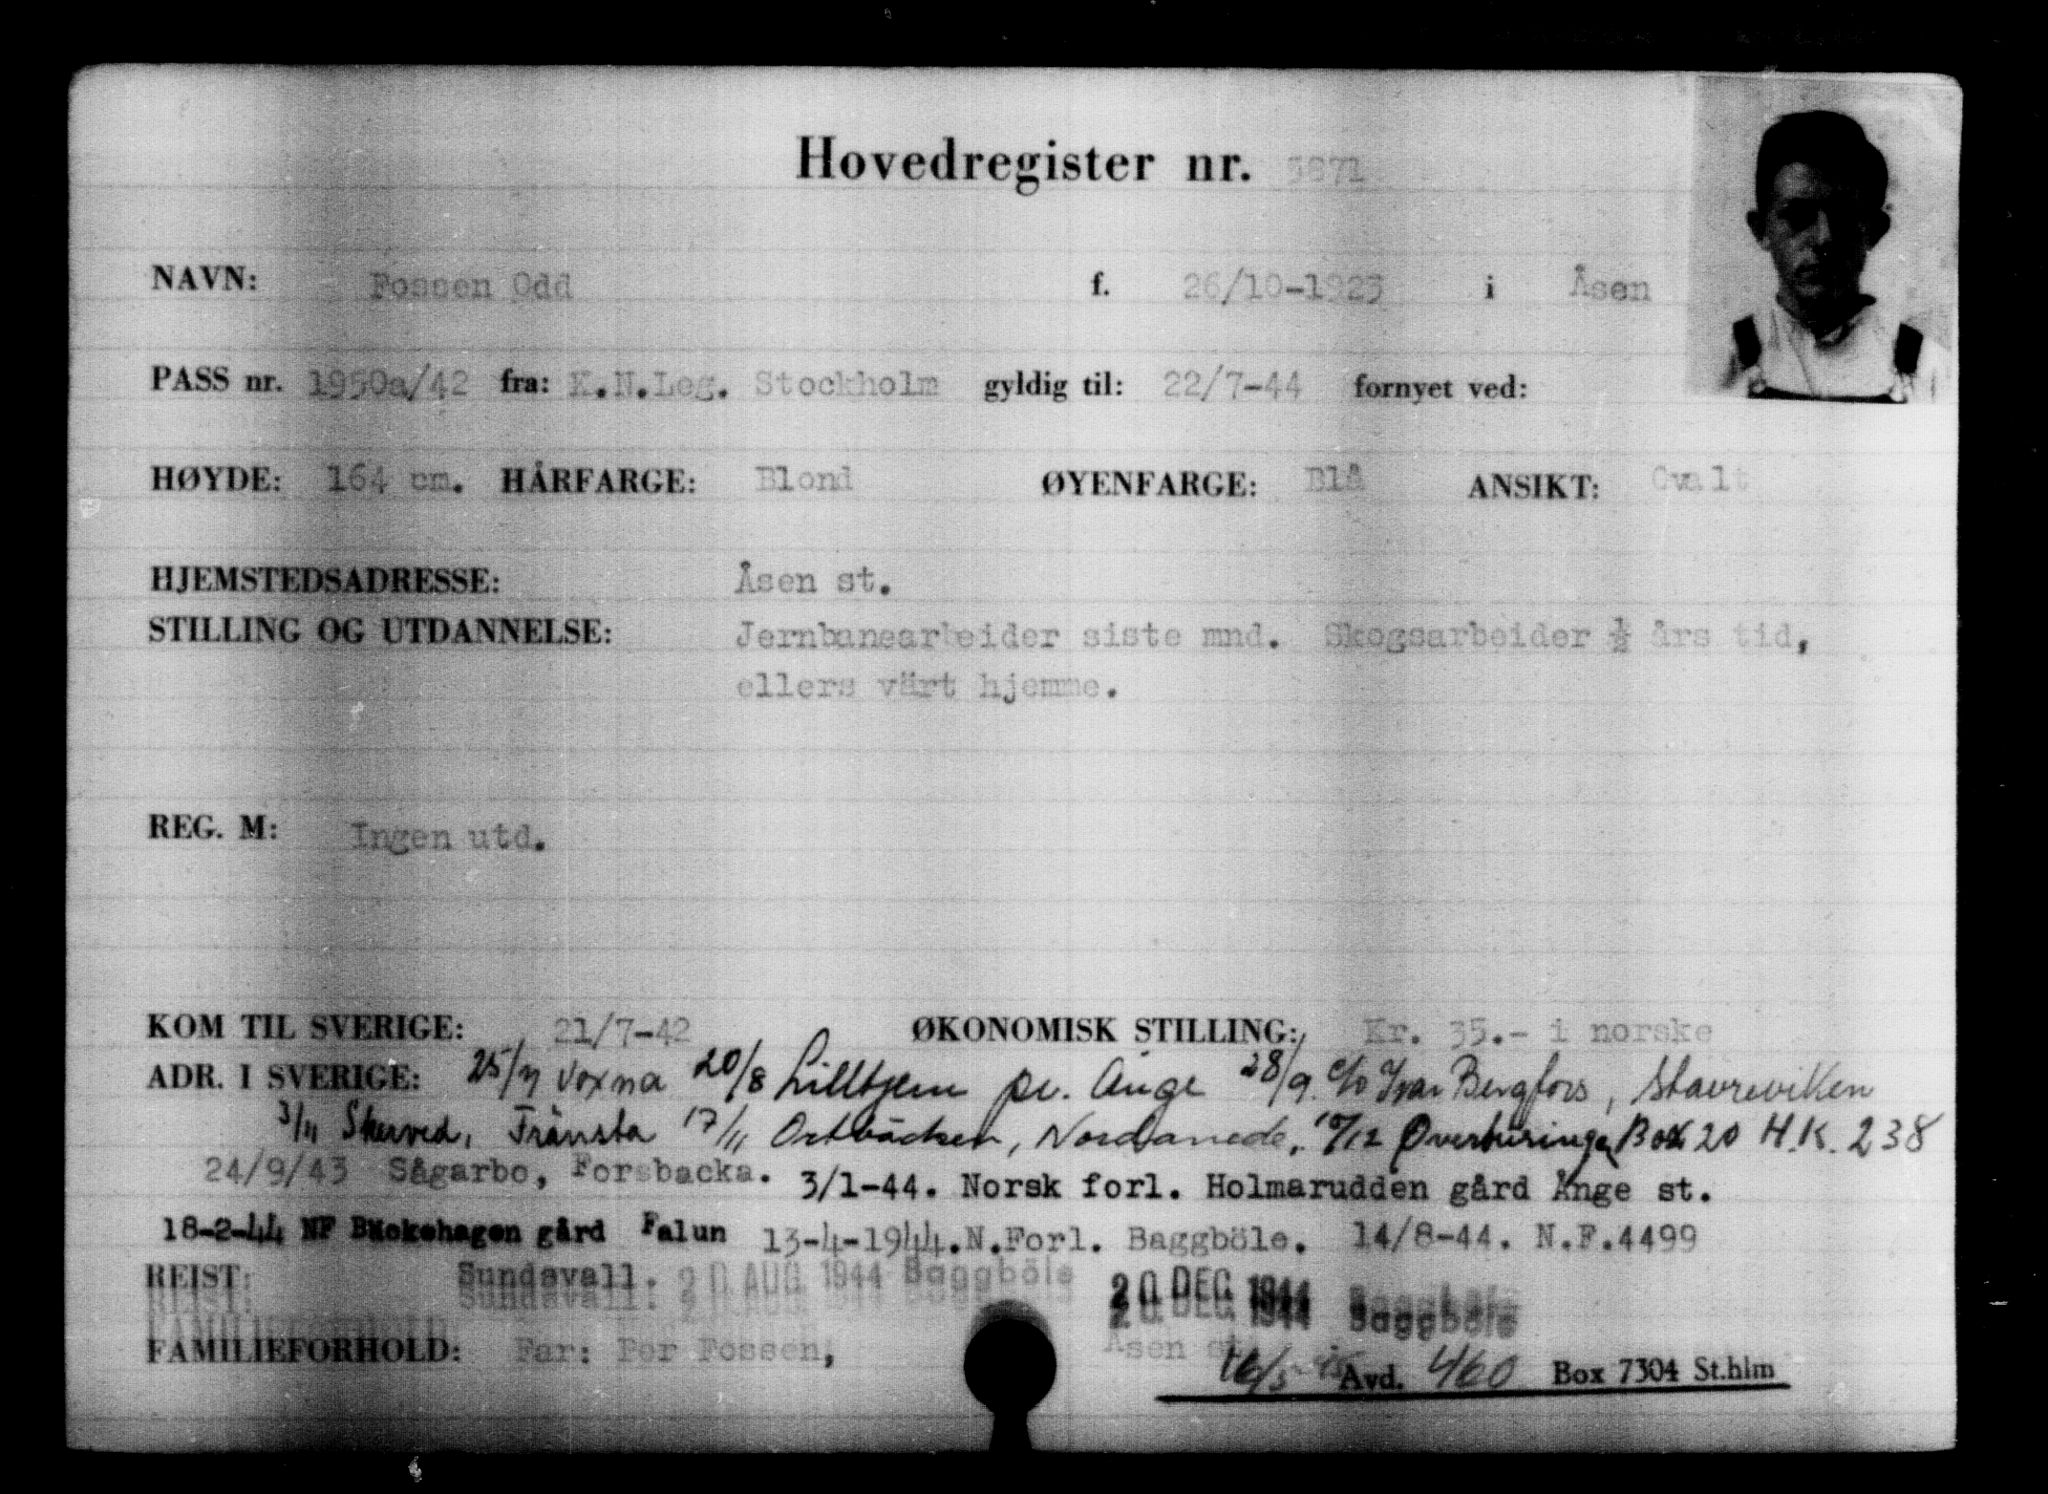 Hovedregister nr. 3871
NAVN: Fossen Odd f. 26/10-1923 i Åsen
PASS nr. 1950a/42 fra: K.N.Leg. Stockholm gyldig til: 22/7-44 fornyet ved:
HØYDE: 164 cm. HÅRFARGE: Blond ØYENFARGE: Blå ANSIKT: Ovalt
HJEMSTEDSADRESSE: Åsen st.
STILLING OG UTDANNELSE: Jernbanearbeider siste mnd. Skogsarbeider ½ års tid,
ellers värt hjemme.
REG. M: Ingen utd.
KOM TIL SVERIGE: 21/7-42 ØKONOMISK STILLING: Kr. 35.- i norske
ADR. I SVERIGE: 25/7 Voxna 20/8 Lilltjern pr. Ånge 28/9. c/o Ivar Bergfors, Stavreviken
3/11 Skerved, Fränsta 17/11 Ortbäcken, Nordanede, 10/12 Överturinge Box 20 H.K. 238
24/9/43 Sågarbo, Forsbacka. 3/1-44. Norsk forl. Holmarudden gård Ånge st.
18-2-44 NF Backehagen gård Falun 13-4-1944.N.Forl. Baggböle. 14/8-44. N.F.4499
REIST: Sundsvall. 20 AUG 1944 Baggböle 20 DEC 1944 Baggböle
FAMILIEFORHOLD: Far: Per Fossen, Åsen st.
16/5-45 Avd. 460 Box 7304 St.hlm